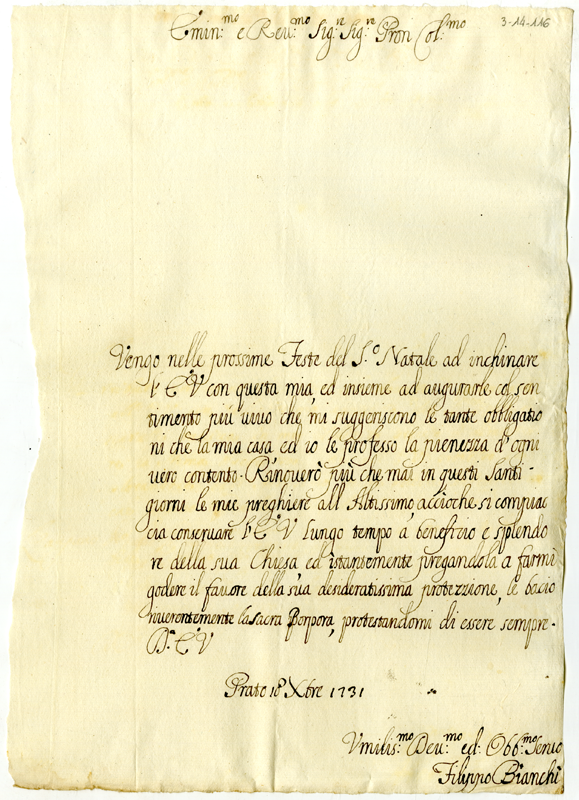 3-14-116
Emin.mo e Rev.mo Sig.r Sig.re Pron Col.mo
Vengo nelle prossime Feste del S.o Natale ad inchinare
l'E.V con questa mia, ed insieme ad augurarle col sen
timento più vivo che mi suggeriscono le tante obbligatio
ni che la mia casa ed io le professo la pienezza d'ogni
vero contento. Rinoverò più che mai in questi Santi
giorni le mie preghiere all Altissimo, acciòche si compiac
cia conservare l'E.V lungo tempo a beneficio e splendo
re della sua Chiesa ed istantemente pregandola a farmi
godere il favore della sua desideratissima protezzione, le bacio
riverentemente la Sacra Porpora, protestandomi di essere sempre.
D.E.V
Prato 18 Xbre 1731
Vmilis.mo Dev.mo ed Obb.mo Servo
Filippo Bianchi